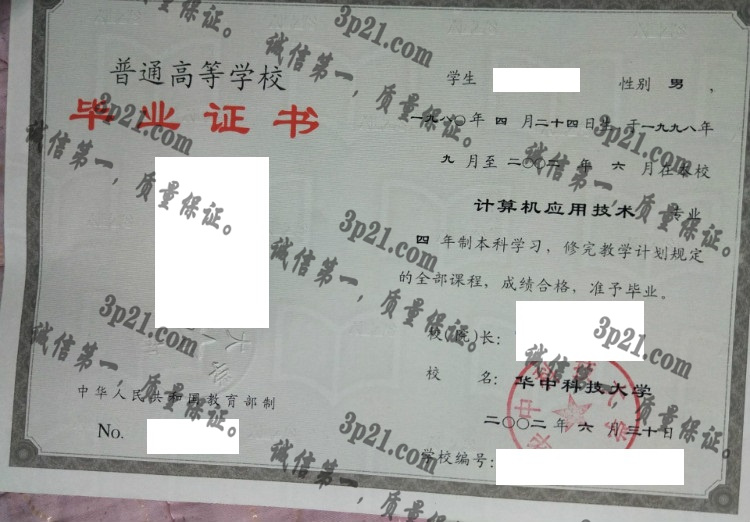 普通高等学校
毕业证书
中华人民共和国教育部制
No.
学生 性别 男,
一九八〇年 四 月二十四日生 于一九九八年
九 月至 二〇〇二 年 六 月在本校
计算机应用技术 专业
四 年制本科学习,修完教学计划规定
的全部课程,成绩合格,准予毕业。
校(院)长:
校 名: 华中科技大学
二〇〇二 年 六 月三十日
学校编号:
3p21.com
诚信第一,质量保证。
3p21.com
诚信第一,质量保证。
3p21.com
诚信第一,质量保证。
3p21.com
诚信第一,质量保证。
3p21.com
诚信第一,质量保证。
3p21.com
诚信第一,质量保证。
3p21.com
诚信第一,质量保证。